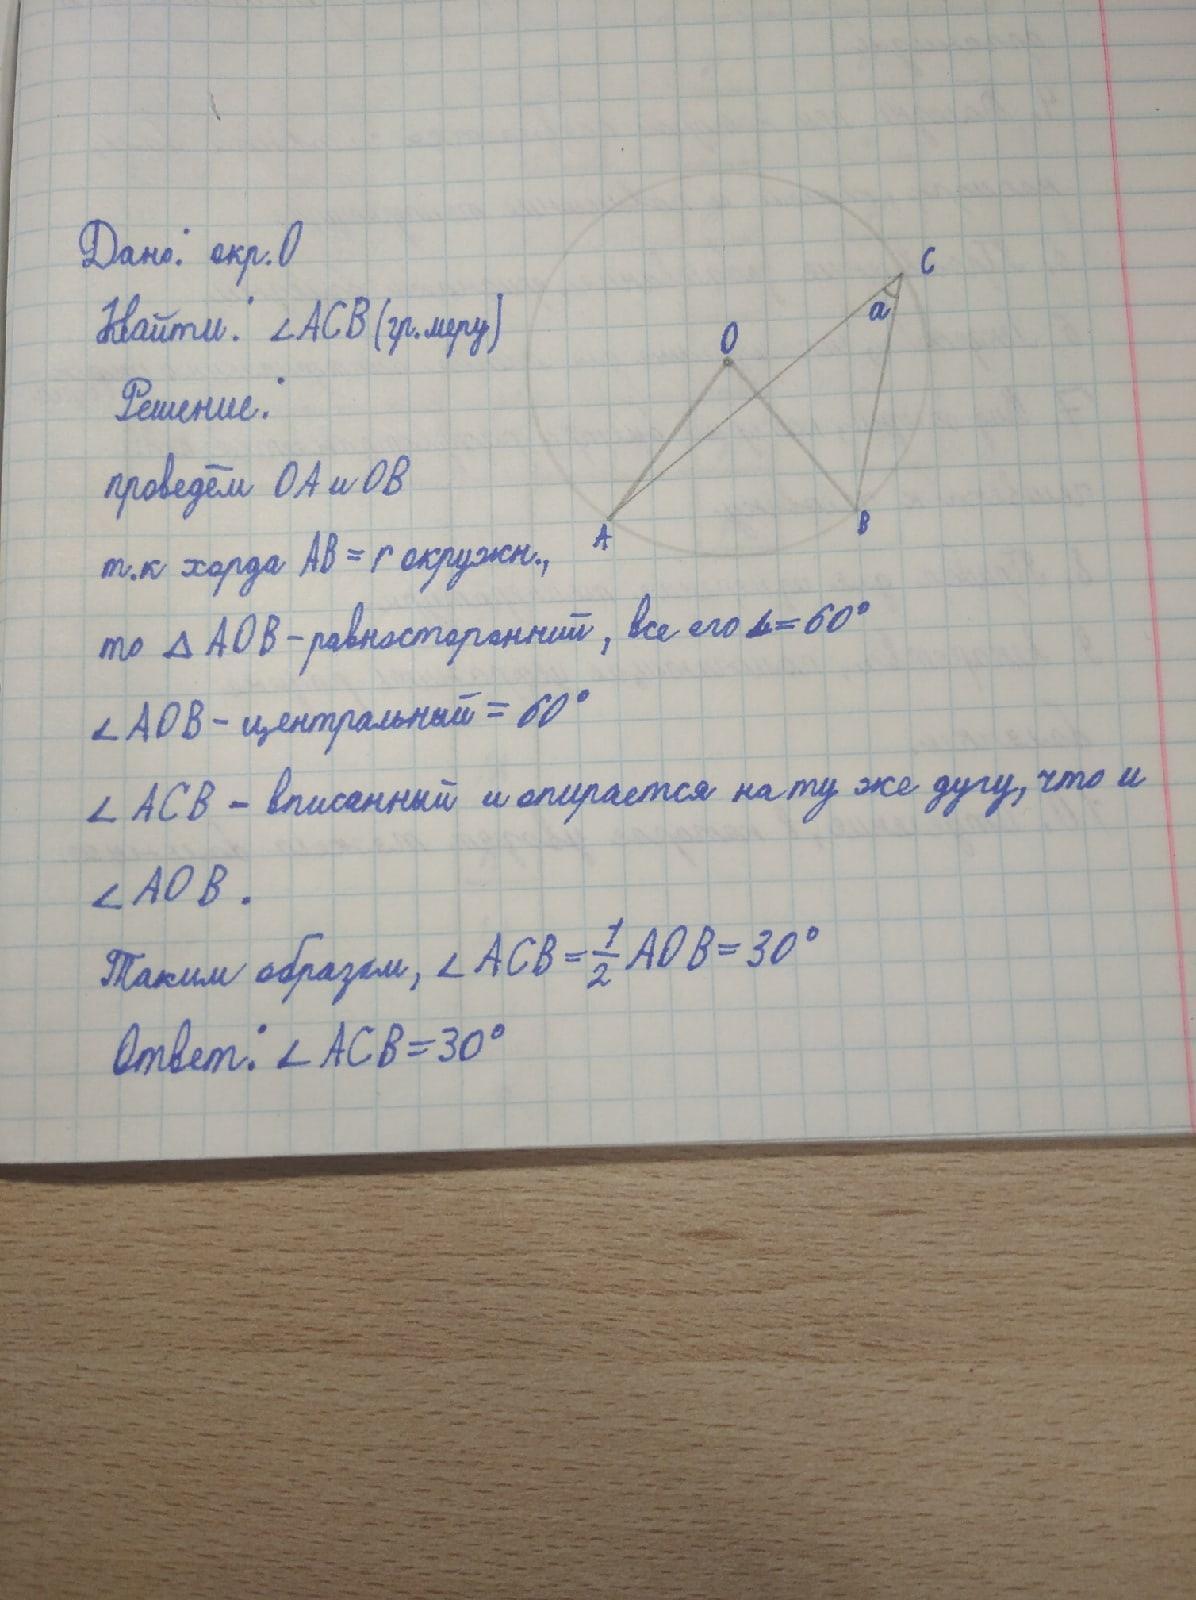 Дано: окр.О
Найти: ∠ACB (гр.меру)
Решение:
проведём ОА и ОВ
т.к хорда АВ = r окружн.,
то △ АОВ - равносторонний, все его ∠ = 60°
∠ АОВ - центральный = 60°
∠ АСВ - вписанный и опирается на ту же дугу, что и
∠ АОВ .
Таким образом, ∠ АСВ = 1/2 АОВ = 30°
Ответ: ∠ АСВ = 30°
C
a
O
A
B